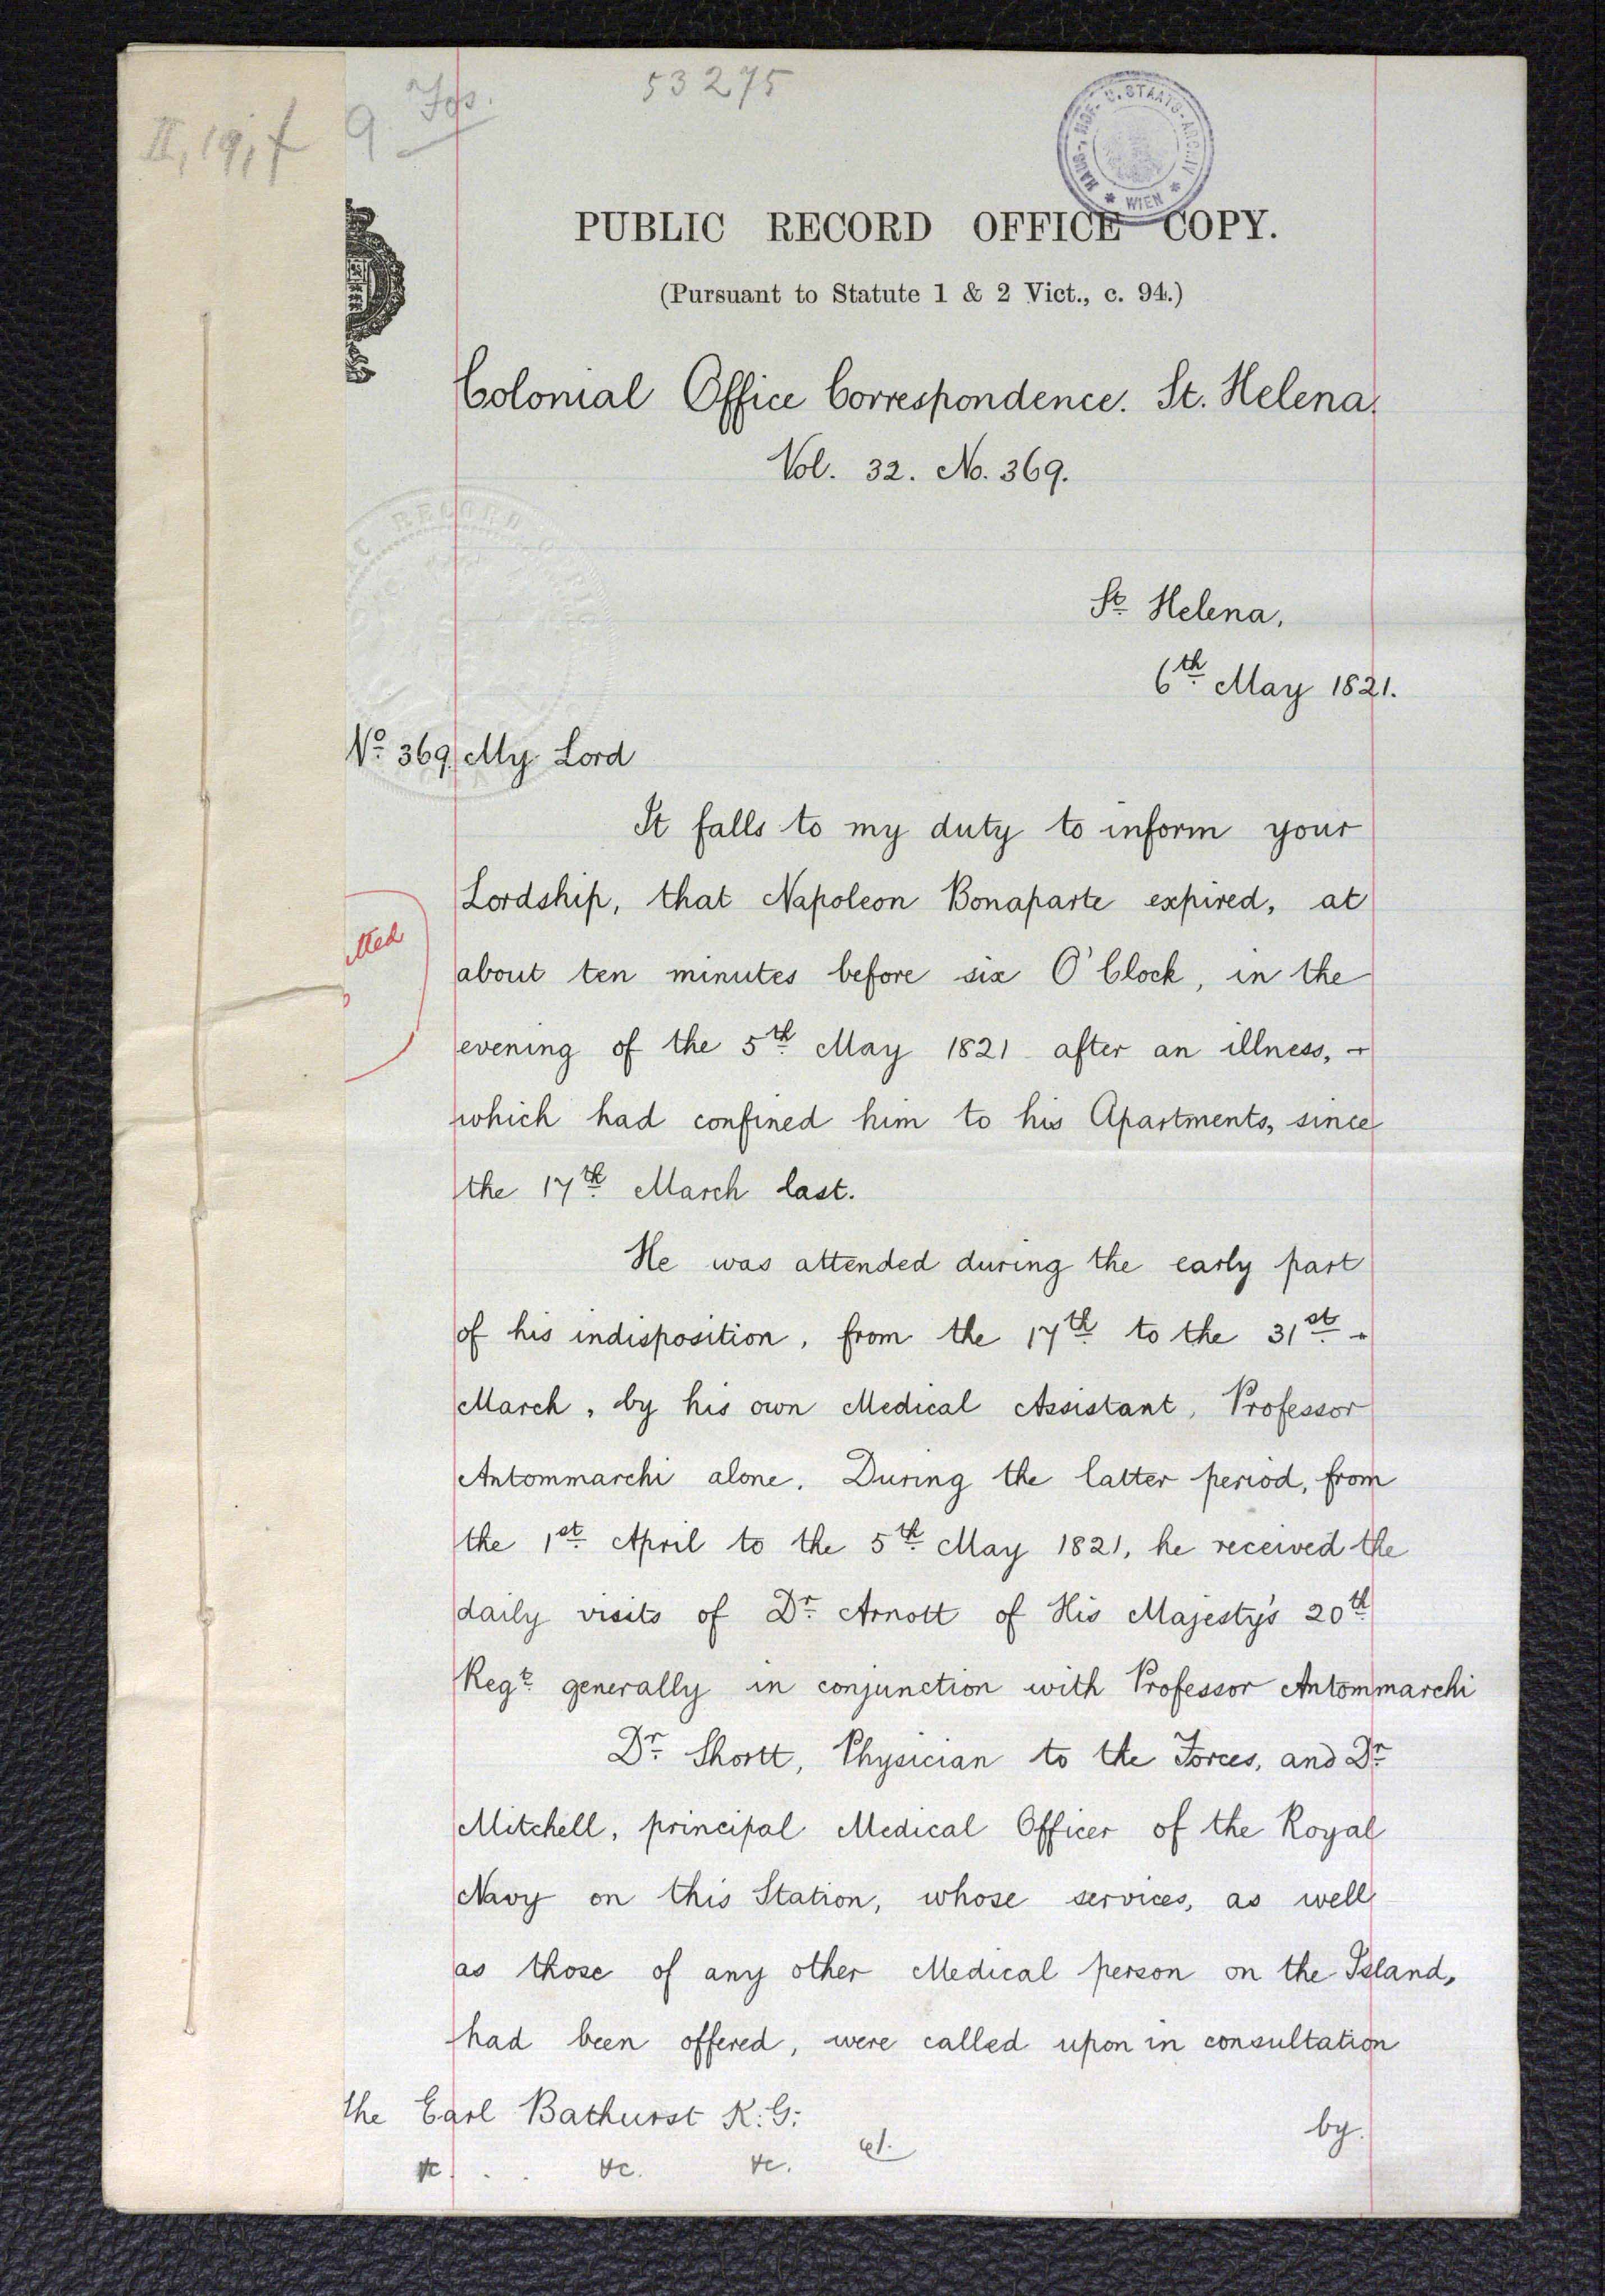 53275
II, 19, f
HAUS-, HOF- U. STAATS-ARCHIV
* WIEN *
PUBLIC RECORD OFFICE COPY.
(Pursuant to Statute 1 & 2 Vict., c. 94.)
Colonial Office Correspondence. St. Helena,
Vol. 32. No. 369.
RECORD
St Helena,
6th May 1821.
No 369. My Lord
It falls to my duty to inform your
Lordship, that Napoleon Bonaparte expired, at
about ten minutes before six O'Clock, in the
evening of the 5th May 1821 after an illness, -
which had confined him to his Apartments, since
the 17th March last.
He was attended during the early part
of his indisposition, from the 17th to the 31st -
March, by his own Medical Assistant, Professor
Antommarchi alone. During the latter period, from
the 1st April to the 5th May 1821, he received the
daily visits of Dr Arnott of His Majesty's 20th
Regt generally in conjunction with Professor Antommarchi
Dr Shortt, Physician to the Forces, and Dr
Mitchell, principal Medical Officer of the Royal
Navy on this Station, whose services, as well
as those of any other Medical person on the Island,
had been offered, were called upon in consultation
by.
the Earl Bathurst K.G:
&c . . &c. &c.